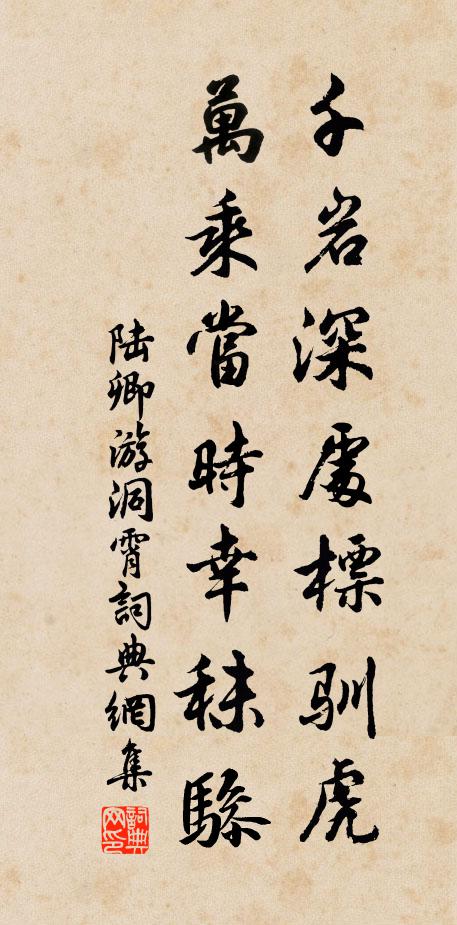 千岩深處標馴虎
萬乘當時幸秣驂
陆卿游洞霄詞典網集
詞典網印